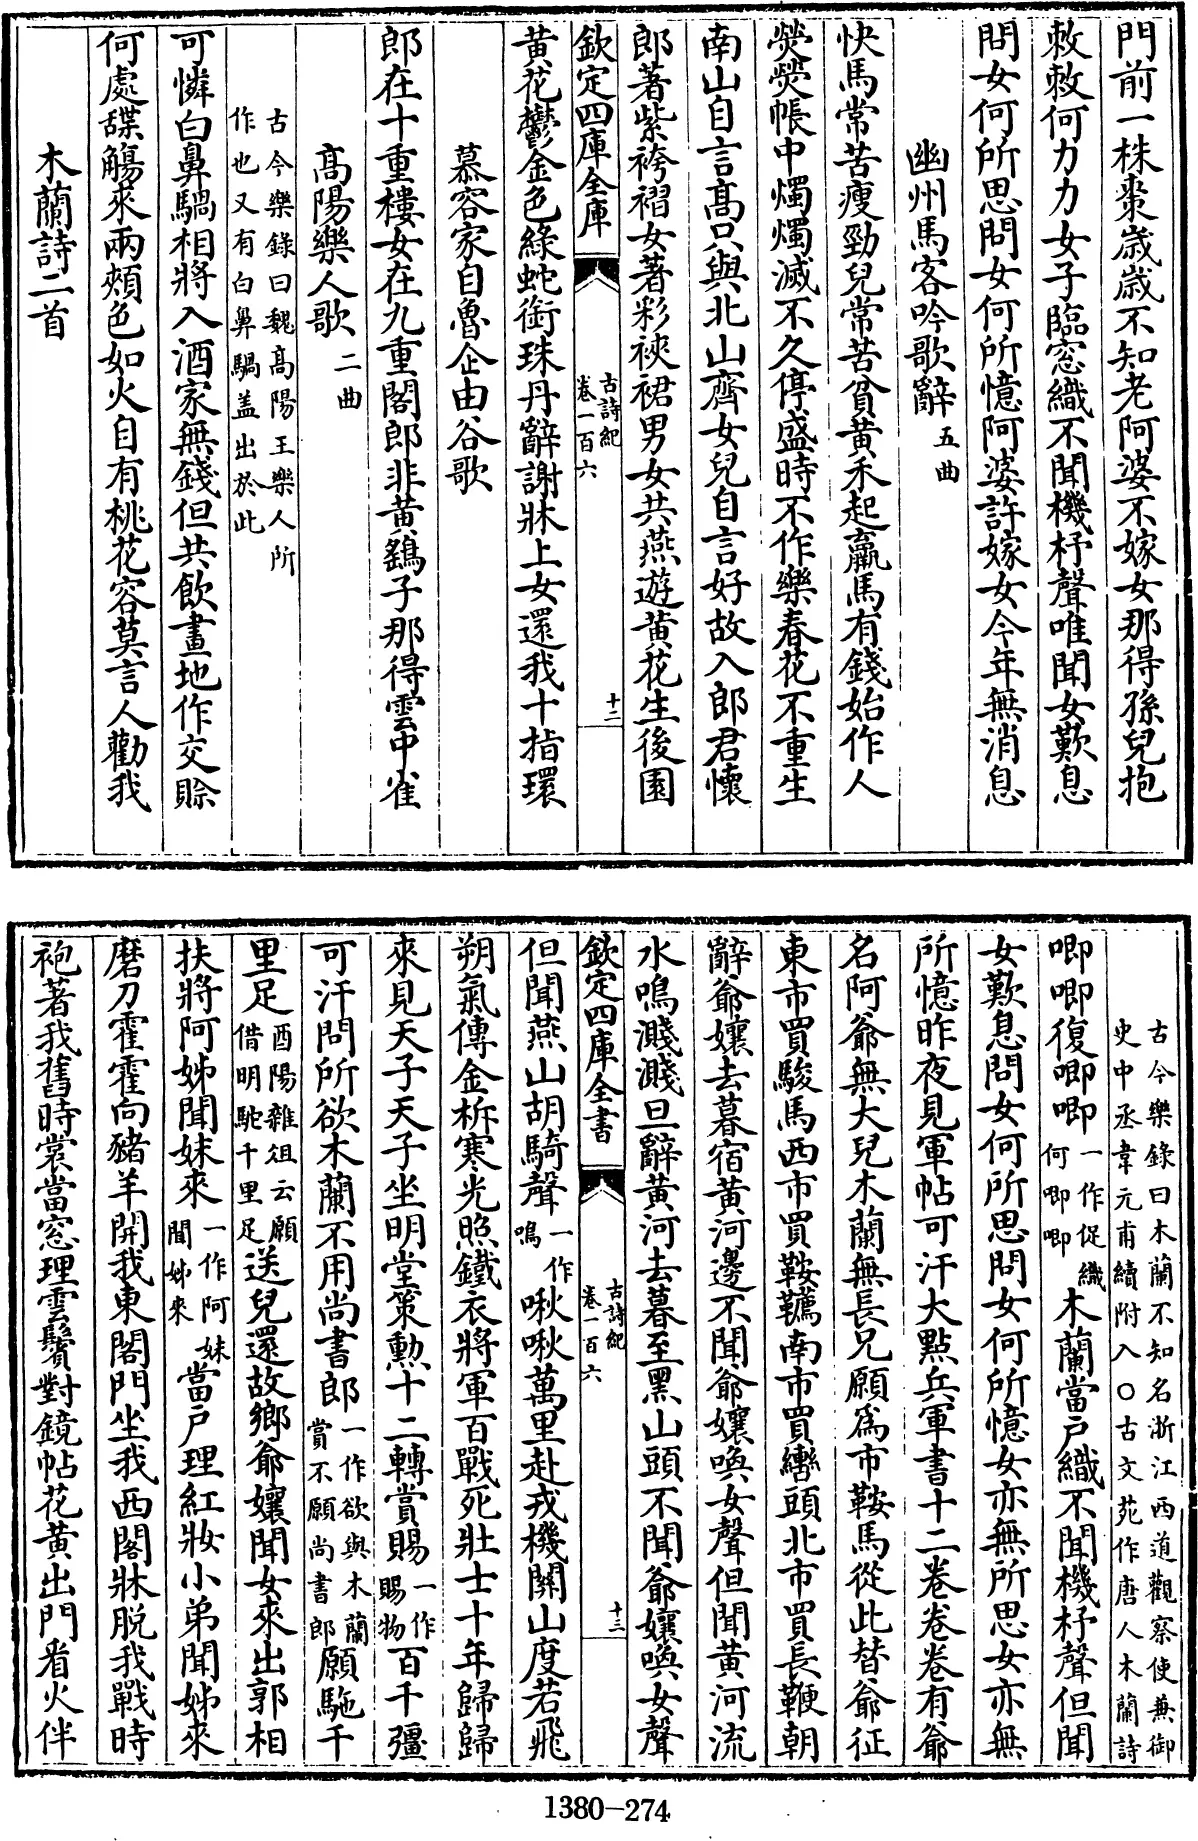 門前一株棗歲歲不知老阿婆不嫁女那得孫兒抱
敕敕何力力女子臨窓織不聞機杼聲唯聞女歎息
問女何所思問女何所憶阿婆許嫁女今年無消息
幽州馬客吟歌辭 五曲
快馬常苦瘦勁兒常苦貧黄禾起羸馬有錢始作人
熒熒帳中燭燭滅不久停盛時不作樂春花不重生
南山自言高只與北山齊女兒自言好故入郎君懷
郎著紫袴褶女著彩裌裙男女共燕遊黄花生後園
欽定四庫全庫
古詩紀
卷一百六
十二
黄花鬱金色綠蛇銜珠丹辭謝牀上女還我十指環
慕容家自魯企由谷歌
郎在十重樓女在九重閣郎非黄鷂子那得雲中雀
高陽樂人歌 二曲
古今樂錄曰魏高陽王樂人所
作也又有白鼻騧盖出於此
可憐白鼻騧相將入酒家無錢但共飲畫地作交賒
何處䤪觴來兩頰色如火自有桃花容莫言人勸我
木蘭詩二首
古今樂錄曰木蘭不知名浙江西道觀察使兼御
史中丞韋元甫續附入○古文苑作唐人木蘭詩
唧唧復唧唧 一作促織何唧唧 木蘭當户織不聞機杼聲但聞
女歎息問女何所思問女何所憶女亦無所思女亦無
所憶昨夜見軍帖可汗大點兵軍書十二卷卷卷有爺
名阿爺無大兒木蘭無長兄願爲市鞍馬從此替爺征
東市買駿馬西市買鞍韉南市買轡頭北市買長鞭朝
辭爺孃去暮宿黄河邊不聞爺孃喚女聲但聞黄河流
水鳴濺濺旦辭黄河去暮至黑山頭不聞爺孃喚女聲
欽定四庫全書
古詩紀
卷一百六
十三
但聞燕山胡騎聲 一作鳴 啾啾萬里赴戎機關山度若飛
朔氣傳金柝寒光照鐵衣將軍百戰死壯士十年歸歸
來見天子天子坐明堂策勲十二轉賞賜 一作賜物 百千彊
可汗問所欲木蘭不用尚書郎 一作欲與木蘭賞不願尚書郎 願馳千
里足 酉陽雜俎云願借明駝千里足 送兒還故鄉爺孃聞女來出郭相
扶將阿姊聞妹來 一作阿妹聞姊來 當户理紅妝小弟聞姊來
磨刀霍霍向豬羊開我東閣門坐我西閣牀脱我戰時
袍著我舊時裳當窓理雲鬢對鏡帖花黄出門看火伴
1380-274